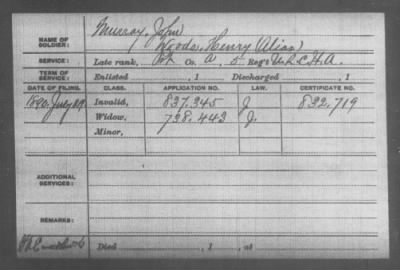 NAME OF SOLDIER: Murray, John
Woods, Henry (Alias)
SERVICE: Late rank, Pt Co. A, 5 Reg't U.S.C.H.A.
TERM OF SERVICE: Enlisted , 1 Discharged , 1
DATE OF FILING. CLASS. APPLICATION NO. LAW. CERTIFICATE NO.
1890, July Invalid, 837.345 J 832.719
Widow, 738.443 J.
Minor,
ADDITIONAL SERVICES:
REMARKS:
Died , 1 , at